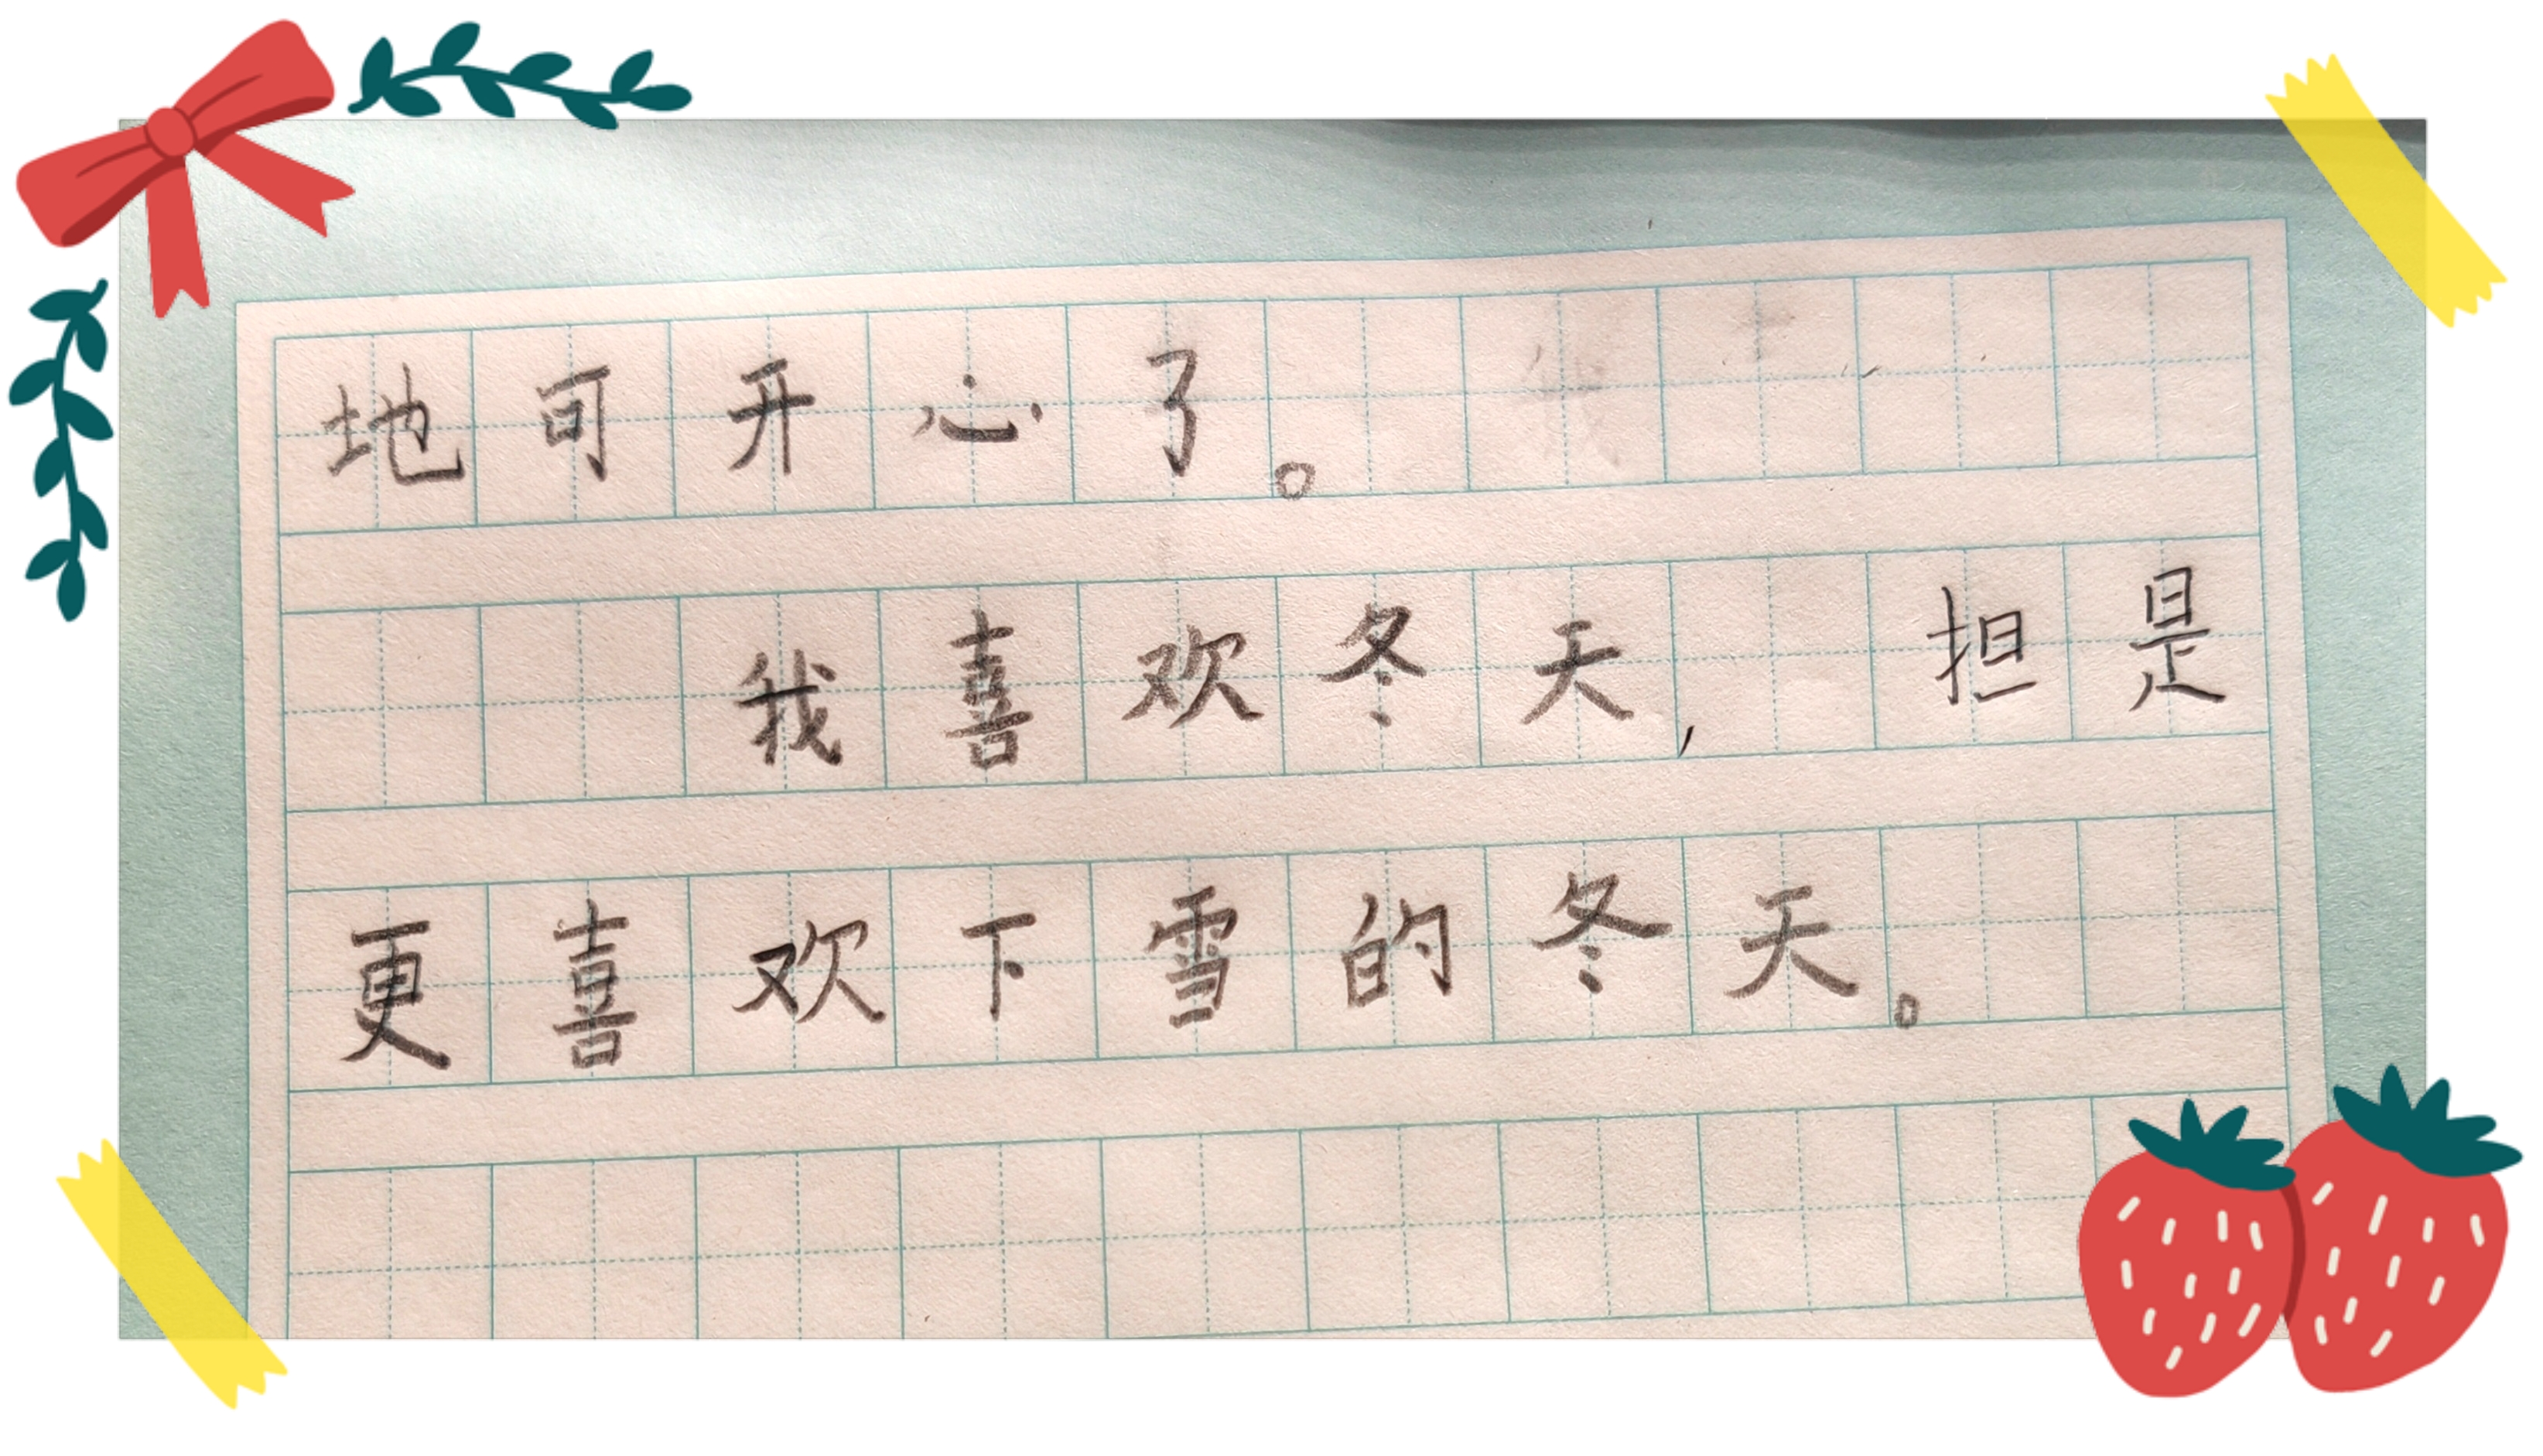 地可开心了。
我喜欢冬天，担是
更喜欢下雪的冬天。